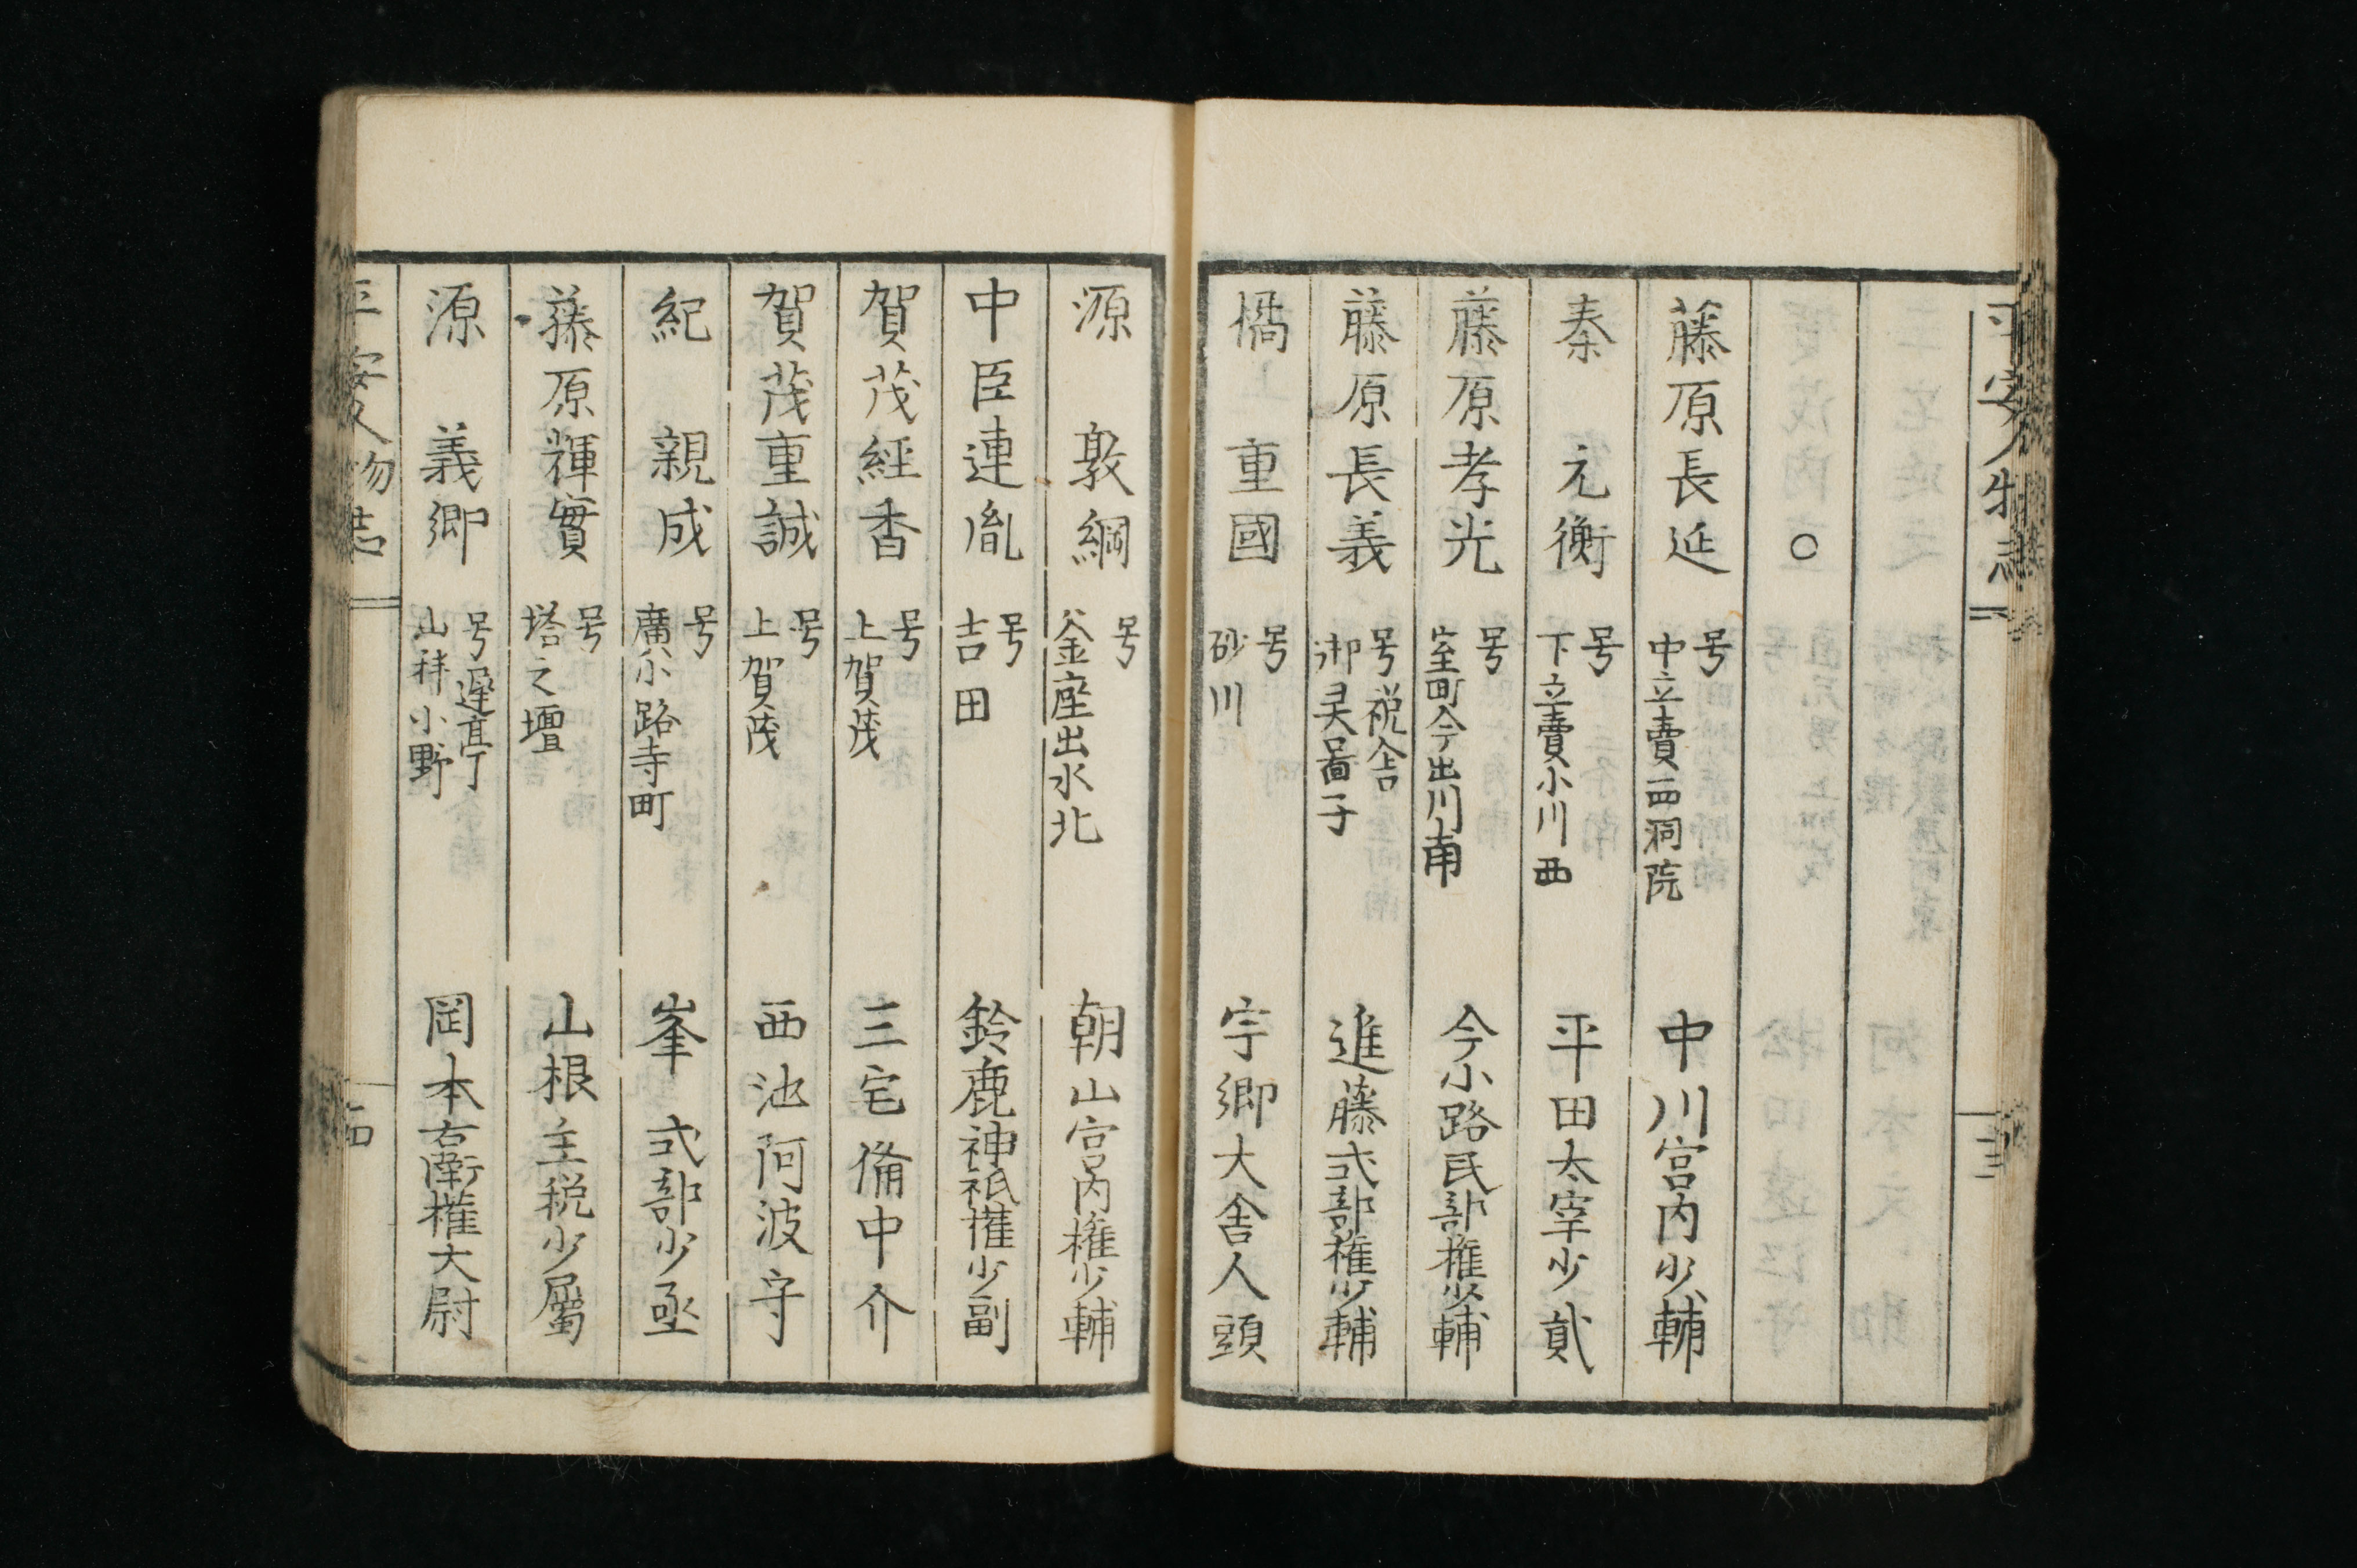 平安人物志
○
藤原長延 号 中立賣西洞院 中川宮内少輔
秦 元衡 号 下立賣小川西 平田太宰少貳
藤原孝光 号 室町今出川南 今小路民部権少輔
藤原長義 号税舎 御灵圖子 進藤式部権少輔
橘 重國 号 砂川 宇郷大舎人頭
源 敦綱 号 釜座出水北 朝山宮内権少輔
中臣連胤 号 吉田 鈴鹿神祇権少副
賀茂經香 号 上賀茂 三宅備中介
賀茂重誠 号 上賀茂 西池阿波守
紀 親成 号 廣小路寺町 峯 式部少丞
藤原輝實 号 塔之壇 山根主税少屬
源 義卿 号遲亭 山科小野 岡本右衛権大尉
平安人物志